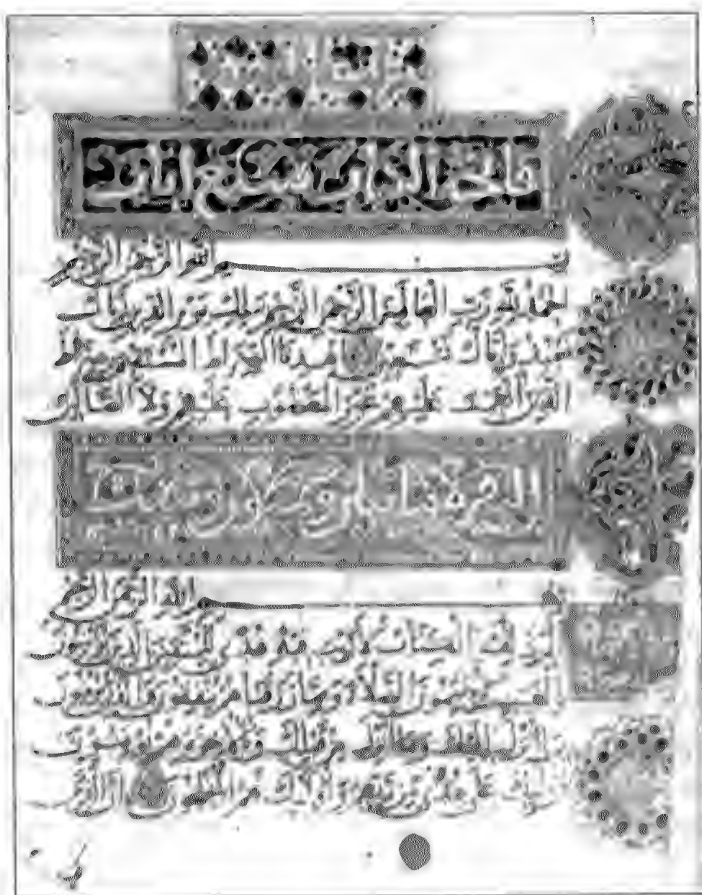 فاتحة سبع ايات
بسم الله الرحمن الرحيم
الحمد لله رب العالمين الرحمن الرحيم ملك يوم الدين اياك
نعبد واياك نستعين اهدنا الصراط المستقيم صراط
الذين انعمت عليهم غير المغضوب عليهم ولا الضالين
البقرة مائتان
بسم الله الرحمن الرحيم
الم ذلك الكتاب لا ريب فيه هدى للمتقين الذين يؤمنون
بالغيب ويقيمون الصلاة ومما رزقناهم ينفقون والذين يؤمنون
بما انزل اليك وما انزل من قبلك وبالاخرة هم يوقنون
اولئك على هدى من ربهم واولئك هم المفلحون ان الذين